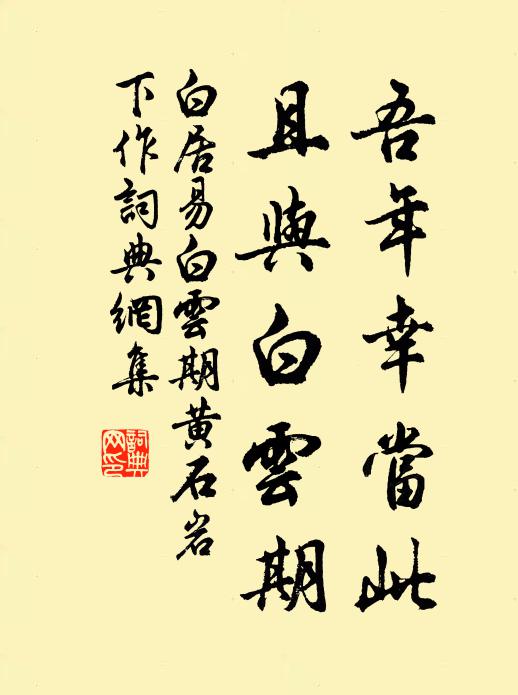 吾年幸當此
且與白雲期
白居易白雲期黃石岩
下作詞典網集
詞典
网印